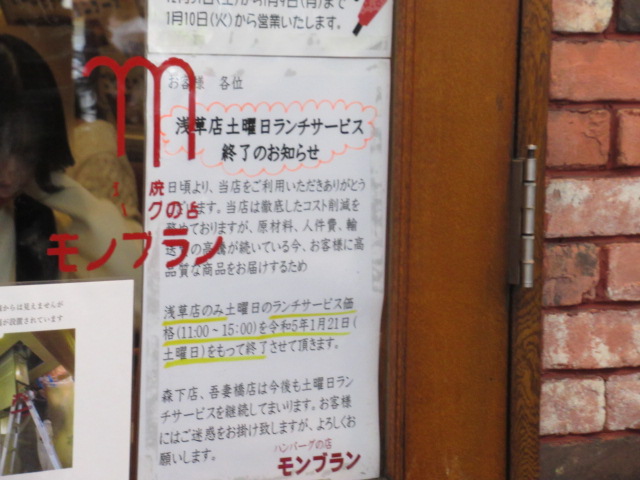 1月10日(火)から営業いたします。
お客様　各位
浅草店土曜日ランチサービス
終了のお知らせ
日頃より、当店をご利用いただきありがとう
ございます。当店は徹底したコスト削減を
務めておりますが、原材料、人件費、輸
送費の高騰が続いている今、お客様に高
品質な商品をお届けするため
浅草店のみ土曜日のランチサービス価
格(11:00~15:00)を令和5年1月21日(
土曜日)をもって終了させて頂きます。
森下店、吾妻橋店は今後も土曜日ラン
チサービスを継続してまいります。お客様
にはご迷惑をお掛け致しますが、よろしくお
願いします。
ハンバーグの店
モンブラン
モンブラン
様からは見えませんが
が設置されています